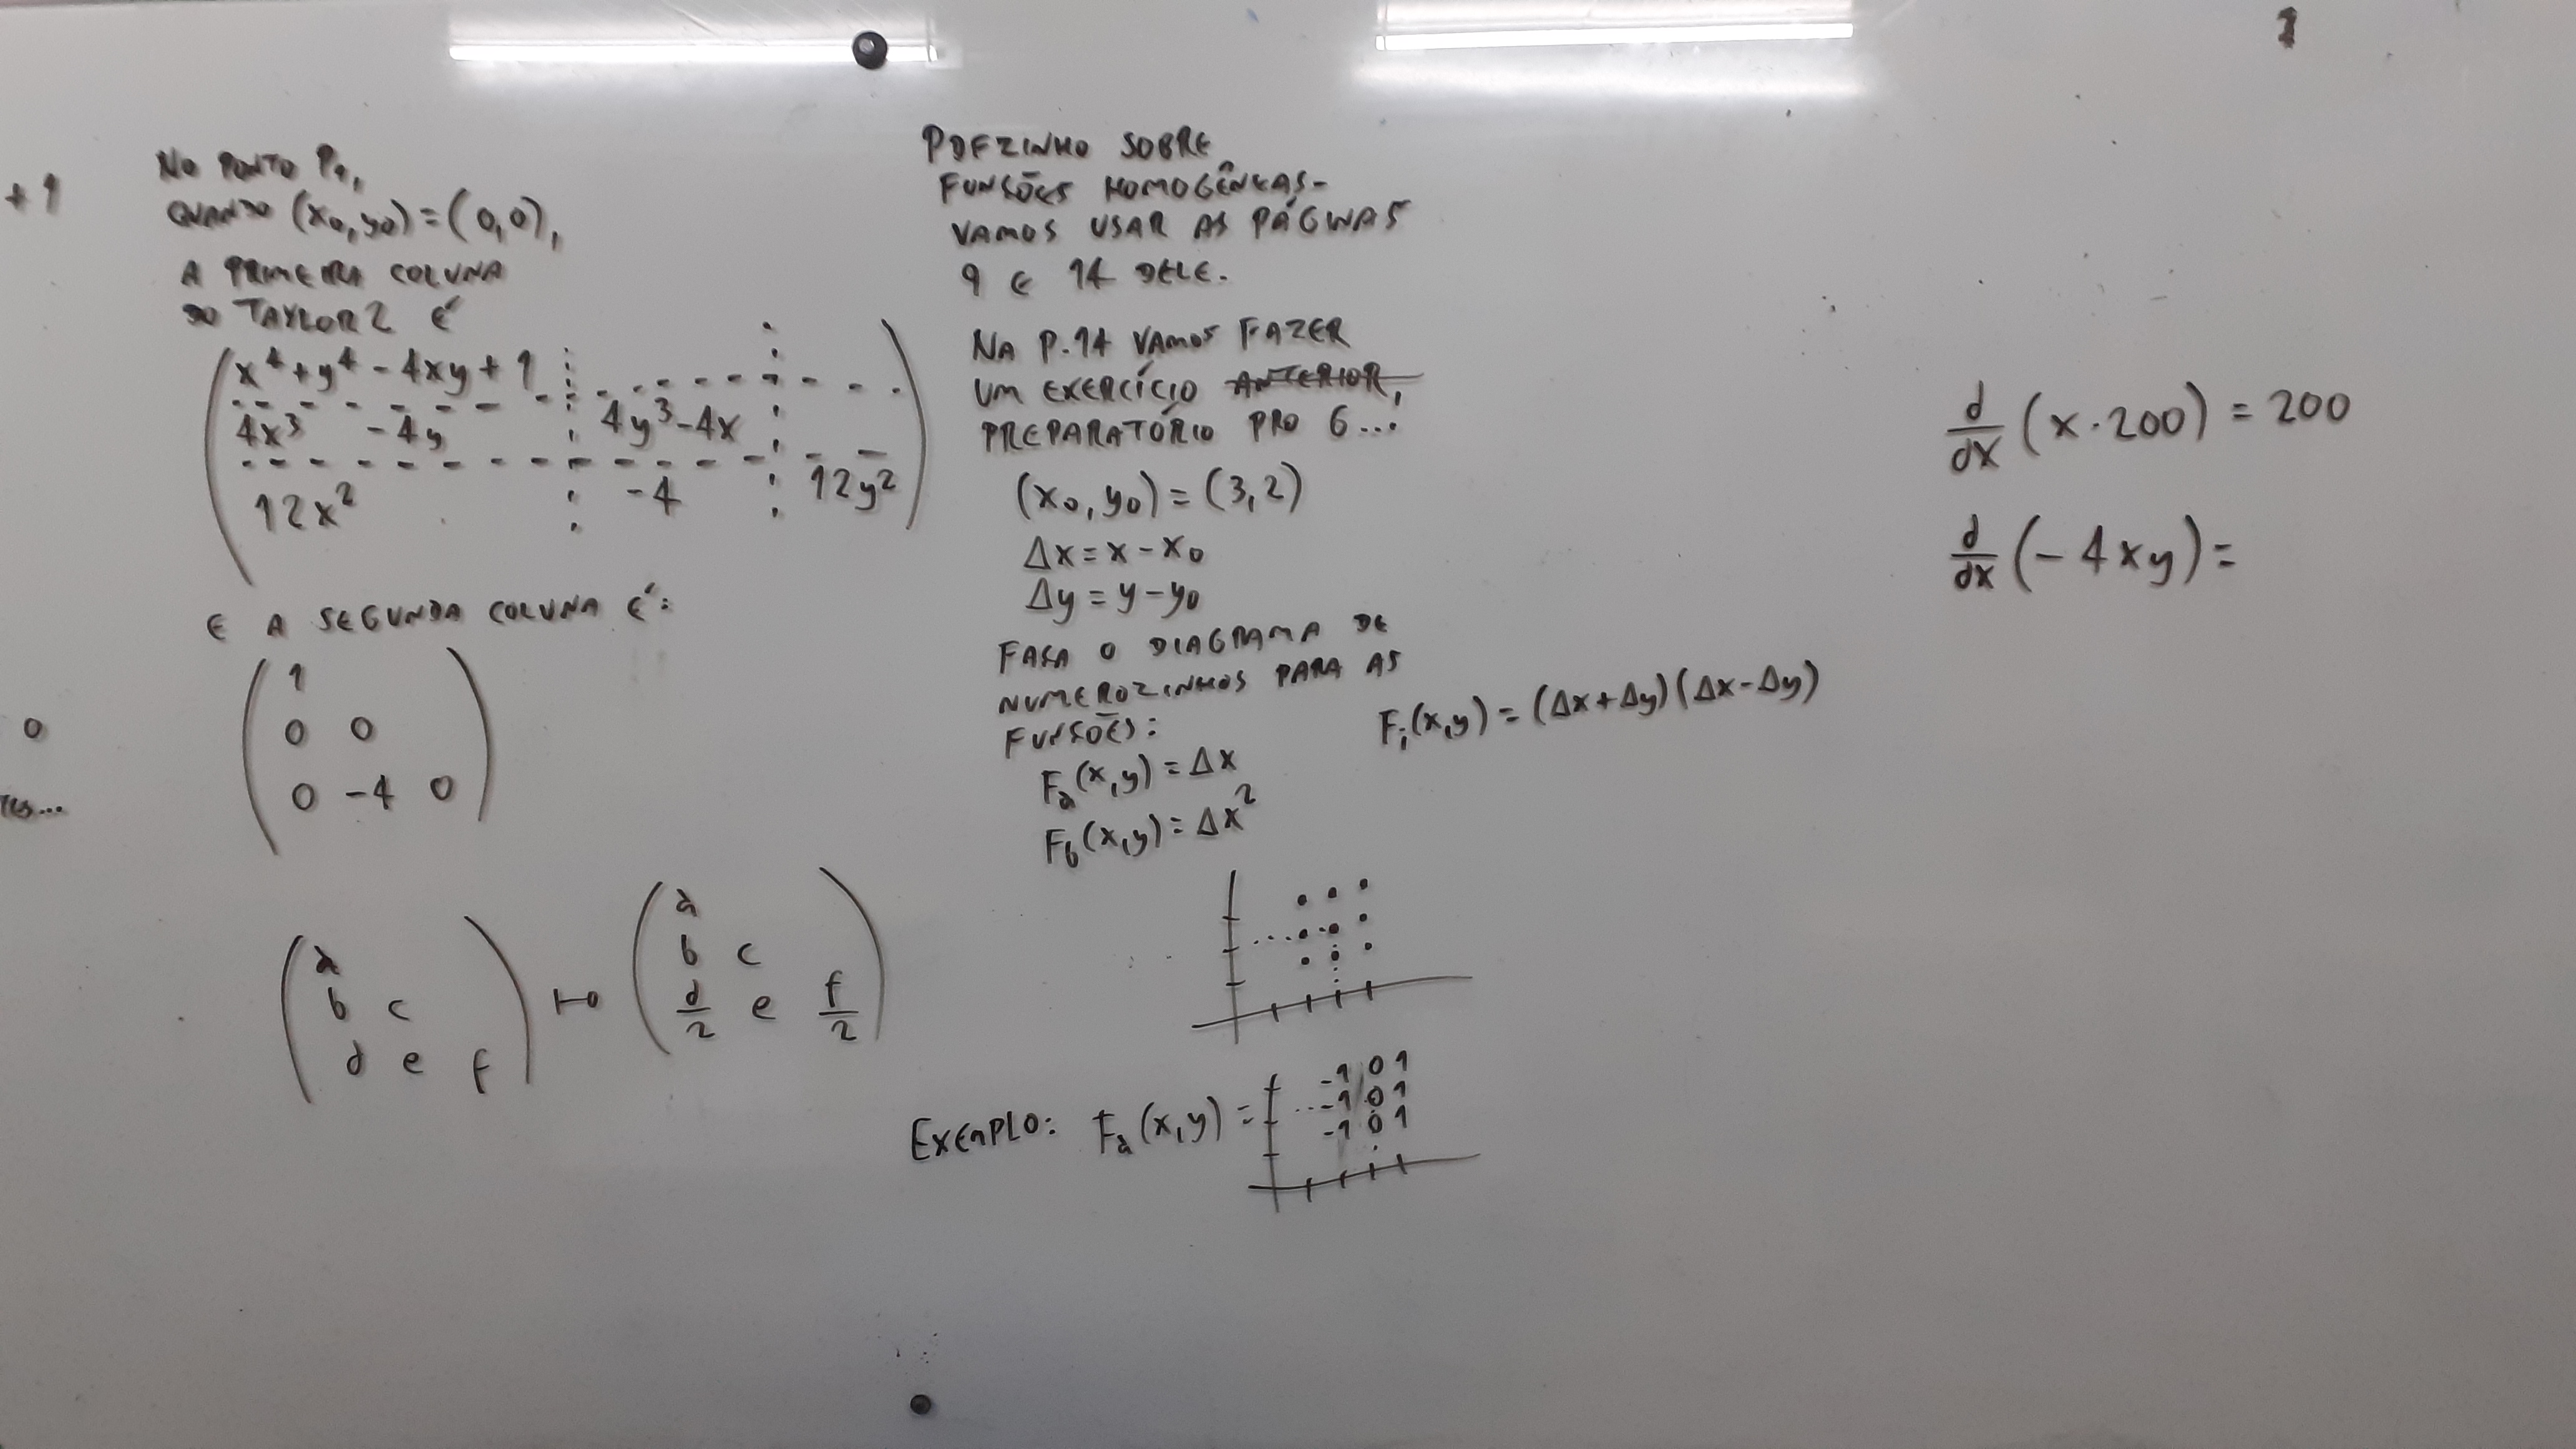 + 1
NO PONTO P1,
QUANDO (x0, y0) = (0,0),
A PRIMEIRA COLUNA
DO TAYLOR 2 É
x⁴ + y⁴ - 4xy + 1
4x³ - 4y 4y³ - 4x
12x² -4 12y²
E A SEGUNDA COLUNA É:
1
0 0
0 -4 0
0
a
b c
d e f
↦
a
b c
d/2 e f/2
PDFZINHO SOBRE
FUNSÕES HOMOGÊNEAS-
VAMOS USAR AS PÁGINAS
9 E 14 DELE.
NA P.14 VAMOS FAZER
UM EXERCÍCIO ANTERIOR,
PREPARATÓRIO PRO 6...
(x0, y0) = (3,2)
Δx = x - x0
Δy = y - y0
FASA O DIAGRAMA DE
NUMEROZINHOS PARA AS
FUNSÕES:
Fa(x,y) = Δx
Fb(x,y) = Δx²
Fi(x,y) = (Δx+Δy)(Δx-Δy)
EXEMPLO: Fa(x,y) =
-1 0 1
-1 0 1
-1 0 1
d/dx (x·200) = 200
d/dx (-4xy) =